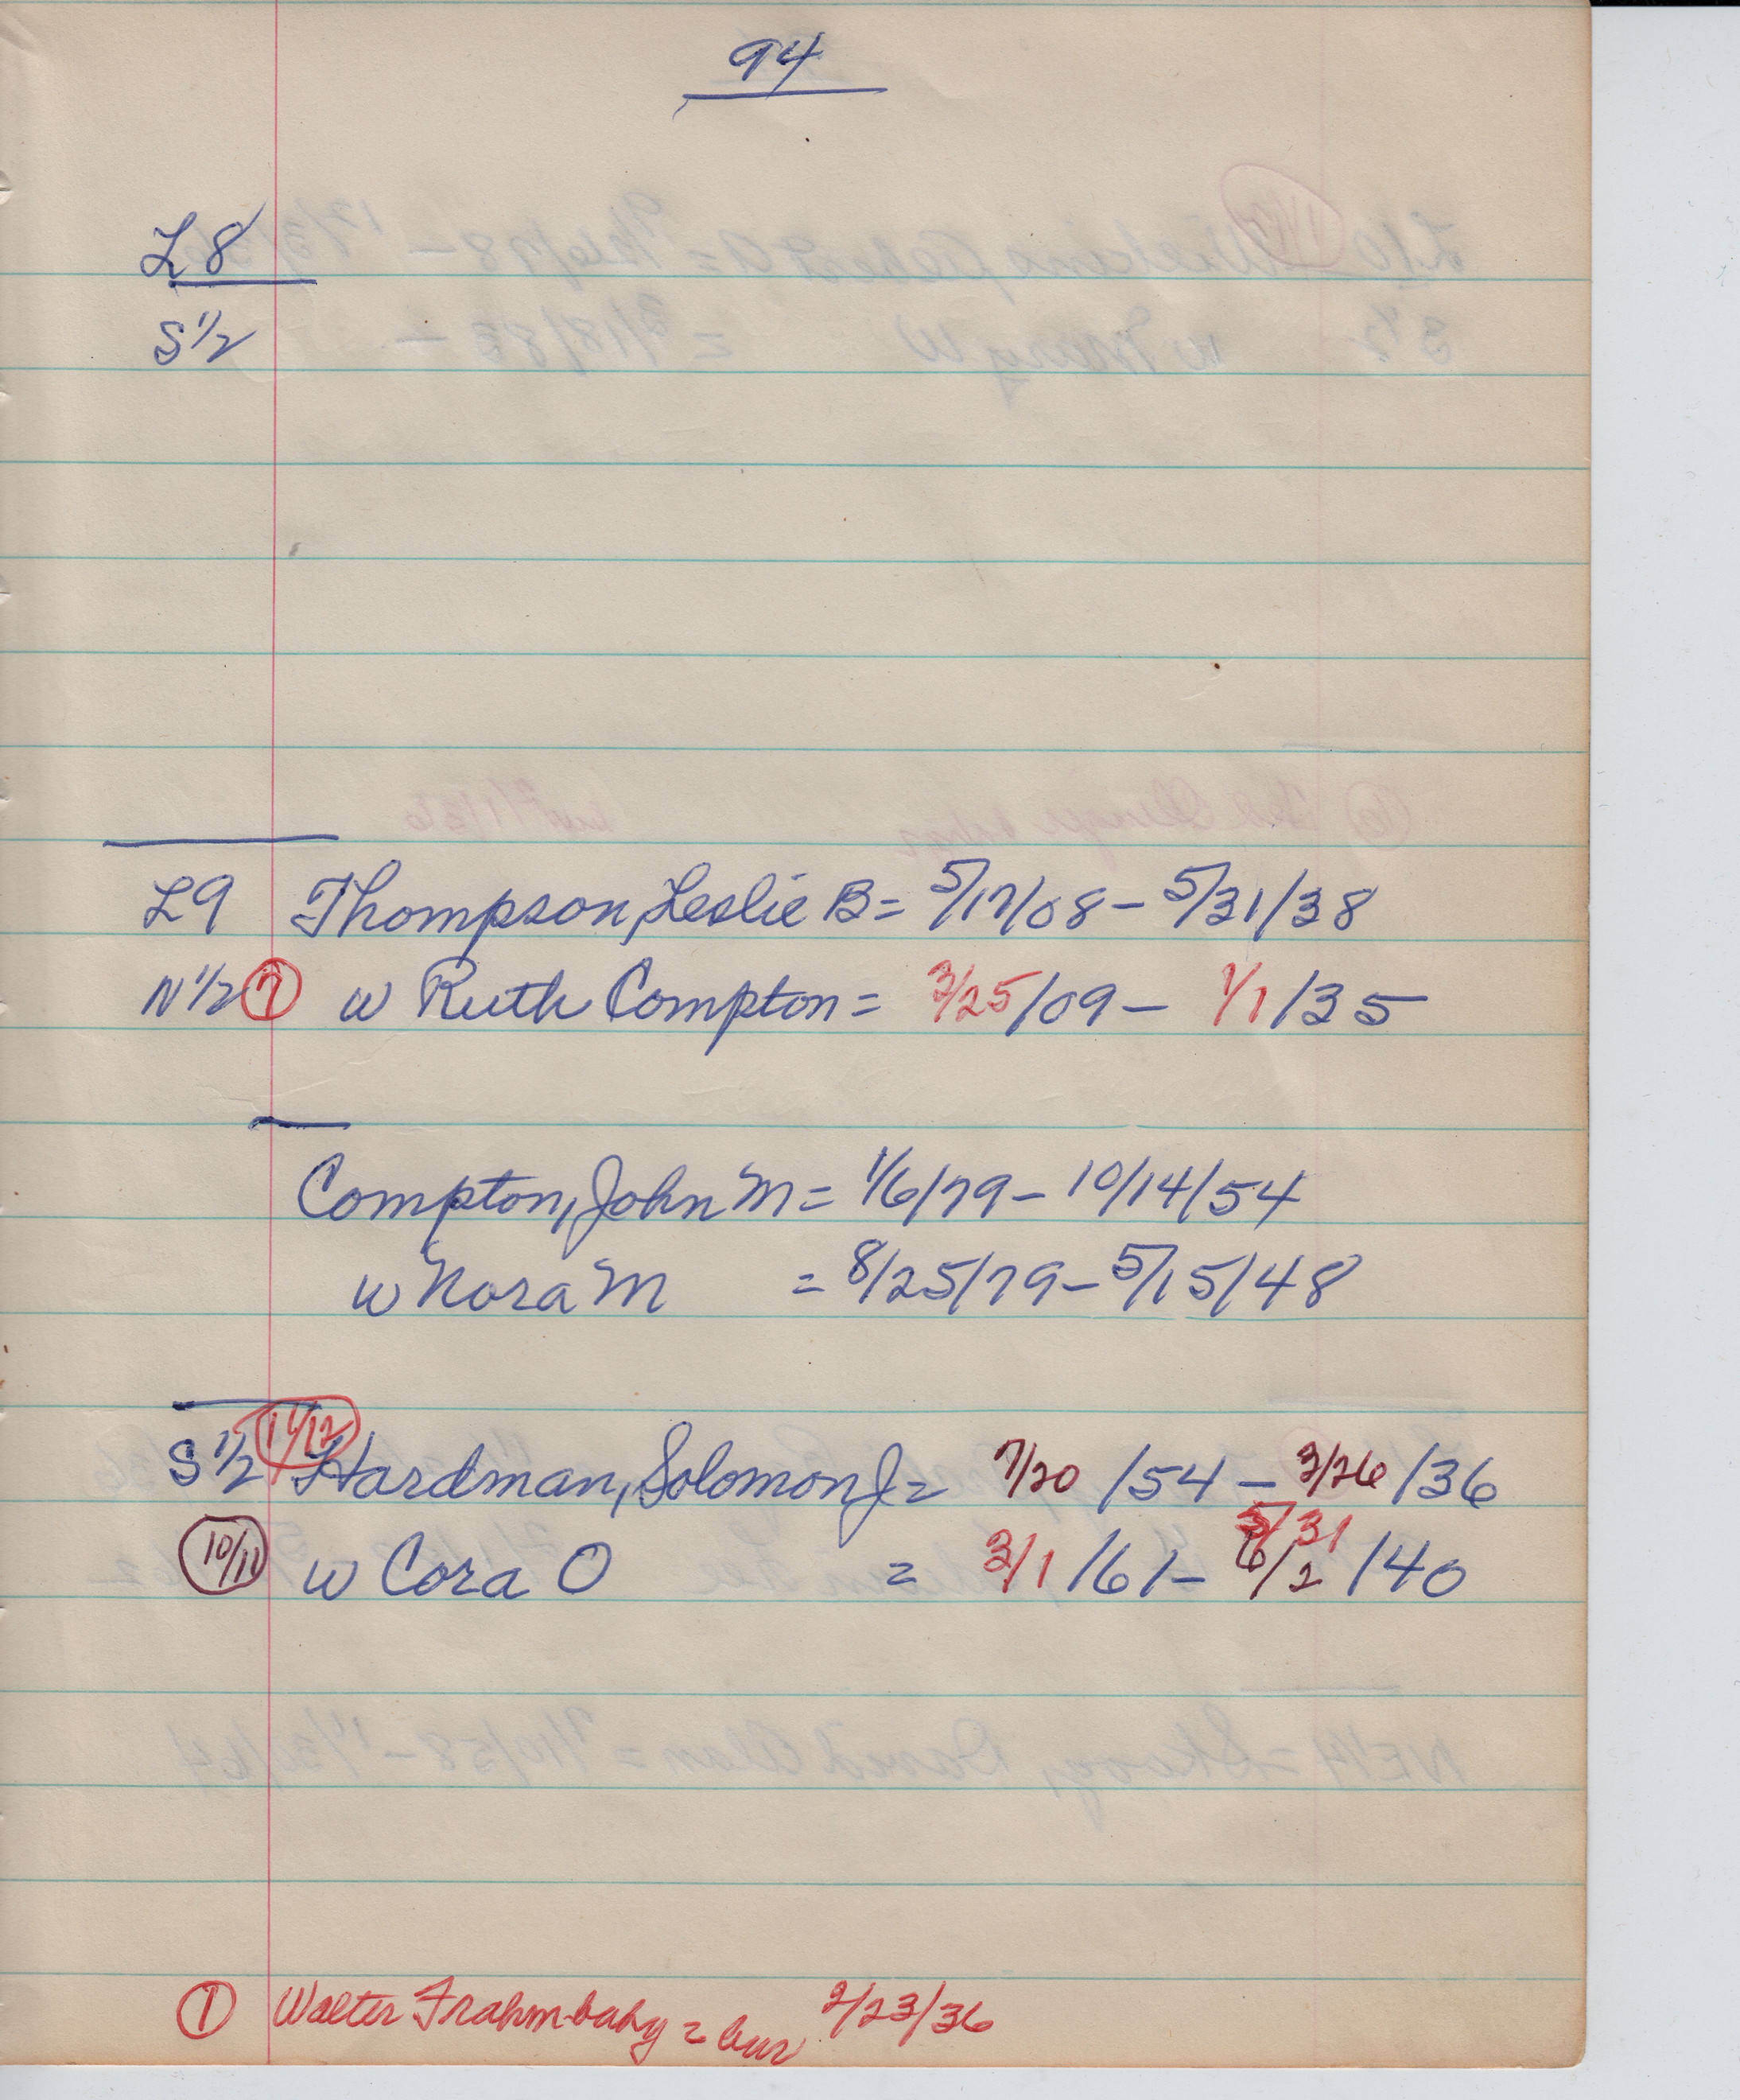 94
L8
S 1/2
L9 Thompson, Leslie B = 5/17/08 - 5/31/38
N 1/2 7 w Ruth Compton = 3/25/09 - 1/1/35
Compton, John M = 1/6/79 - 10/14/54
w Nora M = 8/25/79 - 5/15/48
11/12
S 1/2 Hardman, Solomon J = 7/20/54 - 3/26/36
5/31
10/11 w Cora O = 3/1/61 - 6/2/40
1 Walter Frahm-baby = bur 2/23/36